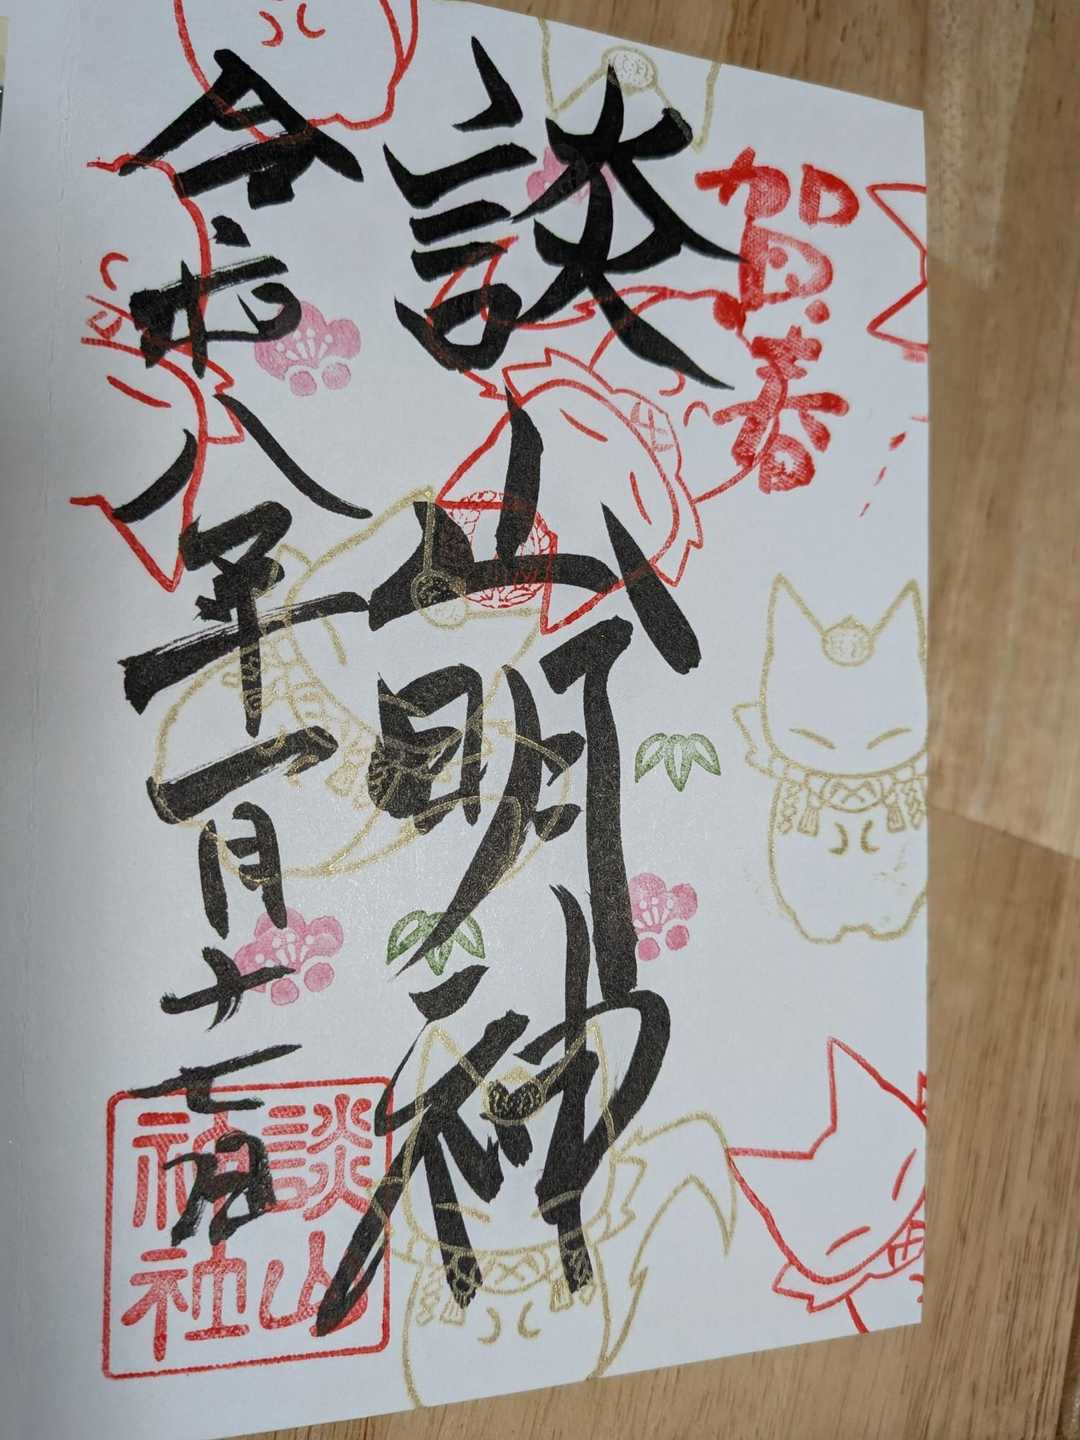 賀春
談山明神
令和八年一月十七日
談山
神社